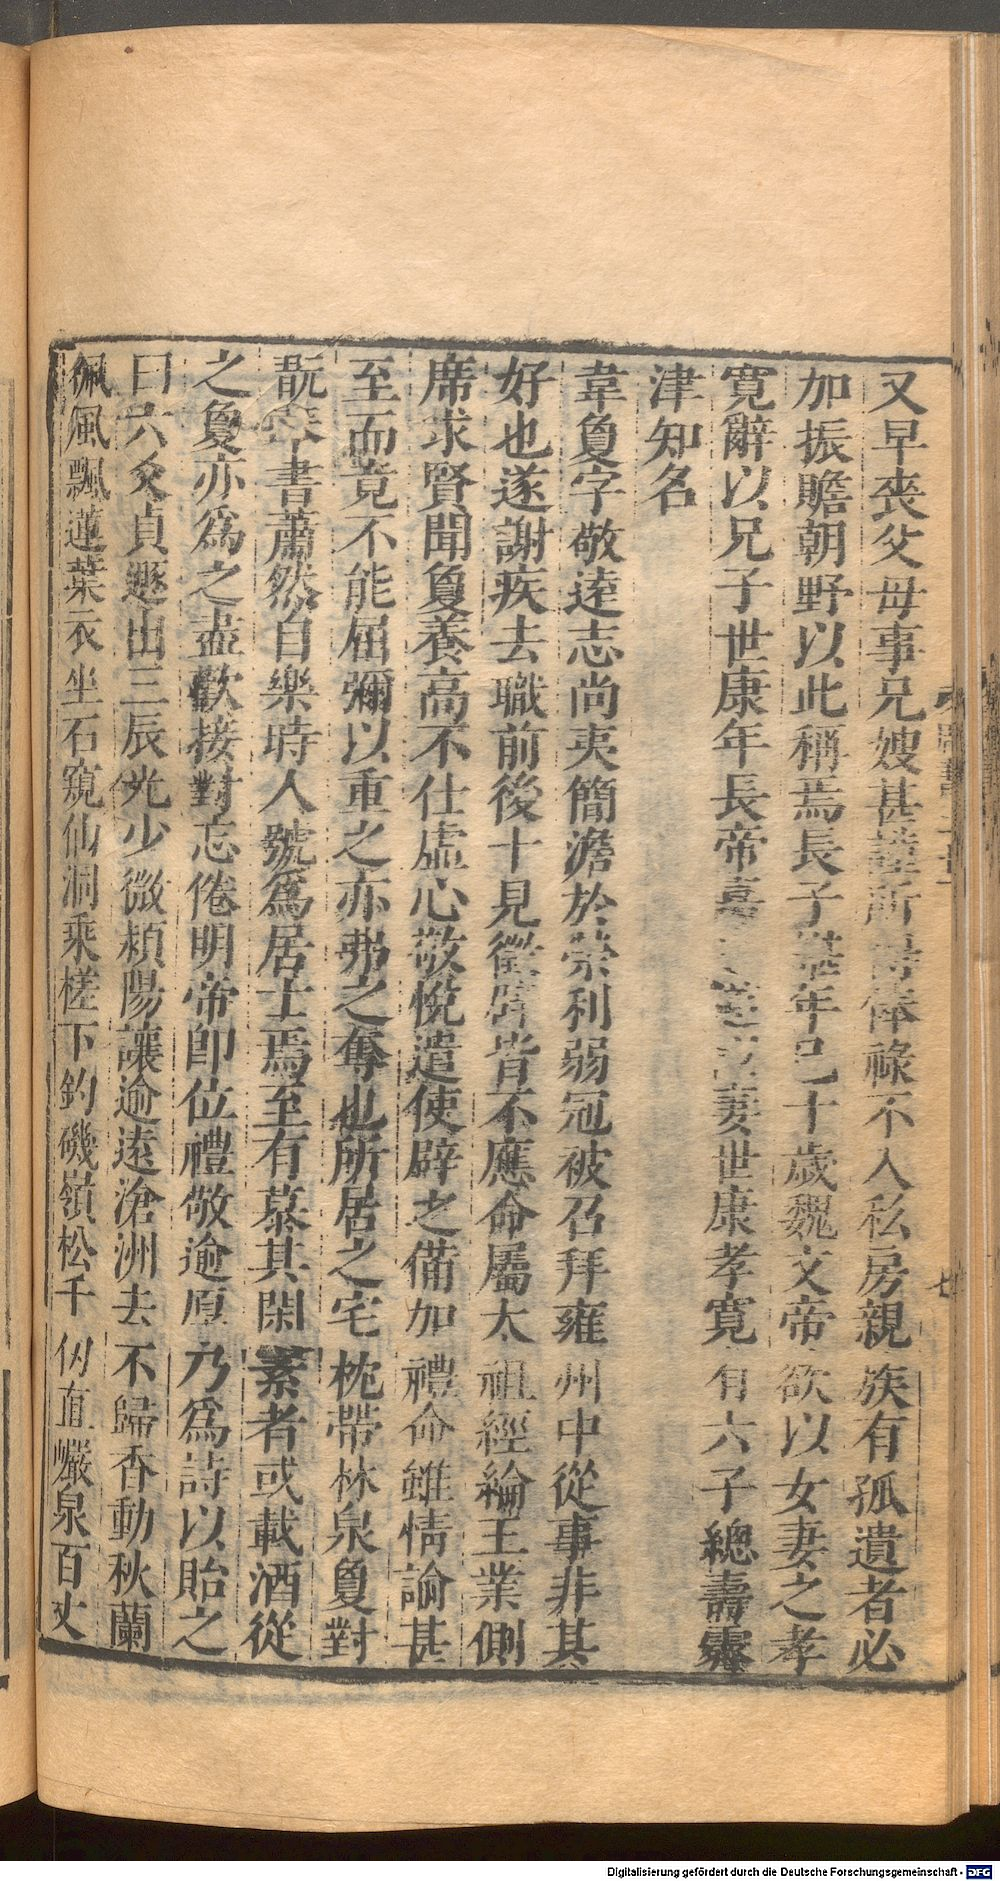 又早喪父母事兄嫂甚謹所得俸祿不入私房親族有孤遺者必
加振贍朝野以此稱焉長子年已十歲魏文帝欲以女妻之孝
寬辭以兄子世康年長帝嘉妻世康孝寬有六子總壽霽
津知名
韋敻字敬遠志尚夷簡澹於榮利弱冠被召拜雍州中從事非其
好也遂謝疾去職前後十見徵辟皆不應命屬太祖經綸王業側
席求賢聞敻養高不仕虛心敬悅遣使辟之備加禮命雖情諭甚
至而竟不能屈彌以重之亦弗之奪也所居之宅枕帶林泉敻對
翫琴書蕭然自樂時人號為居士焉至有慕其閑素者或載酒從
之敻亦為之盡歡接對忘倦明帝即位禮敬逾厚乃為詩以貽之
曰六爻貞遯出三辰光少微潁陽讓逾遠滄洲去不歸香動秋蘭
佩風飄蓮葉衣坐石窺仙洞乘槎下釣磯嶺松千仞直巖泉百丈
Digitalisierung gefördert durch die Deutsche Forschungsgemeinschaft - DFG